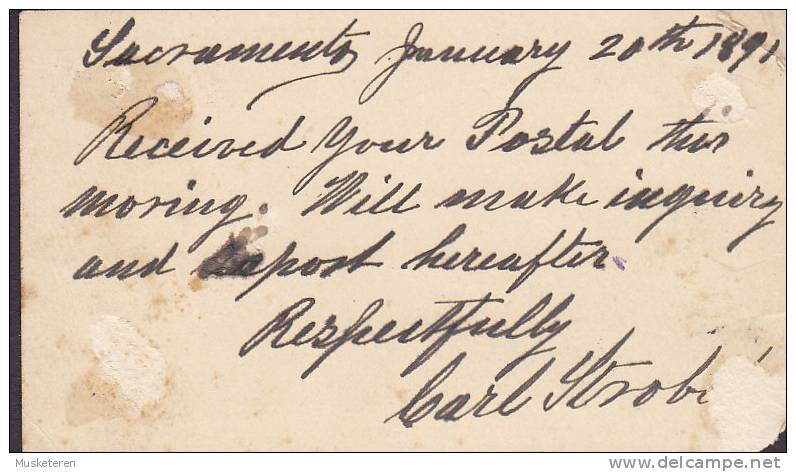 Sacramento January 20th 1891
Received Your Postal this
moring. Will make inquiry
and repost hereafter.
Respectfully
Carl Strob
Musketeren
delcampe.net